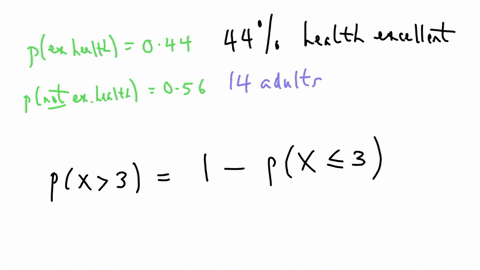 p(ex health) = 0.44 44% health excellent
p(not ex. health) = 0.56 14 adults
p(X > 3) = 1 - p(X ≤ 3)